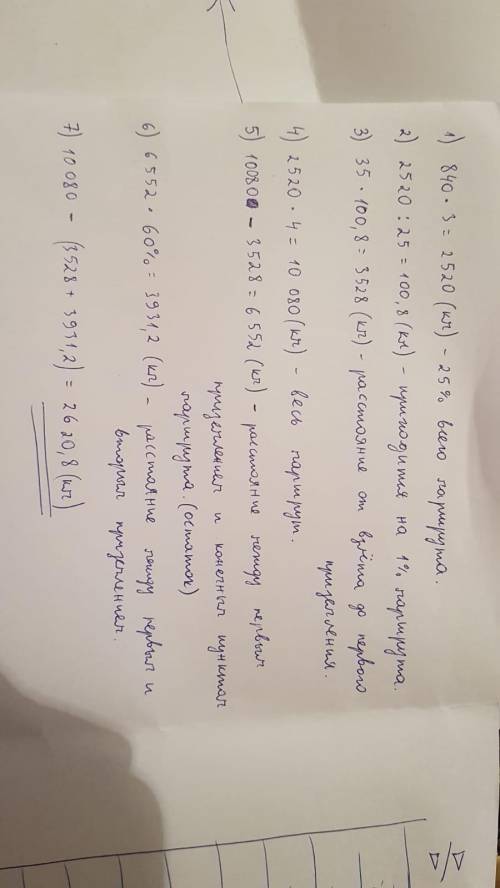 1) 840 · 3 = 2520 (км) - 25% всего маршрута.
2) 2520 : 25 = 100,8 (км) - приходится на 1% маршрута.
3) 35 · 100,8 = 3528 (км) - расстояние от взлёта до первого
приземления.
4) 2520 · 4 = 10 080 (км) - весь маршрут.
5) 10080 - 3528 = 6552 (км) - расстояние между первым
приземлением и конечным пунктом
маршрута. (остаток)
6) 6552 · 60% = 3931,2 (км) - расстаяние между первым и
вторым приземлением.
7) 10 080 - (3528 + 3931,2) = 2620,8 (км)